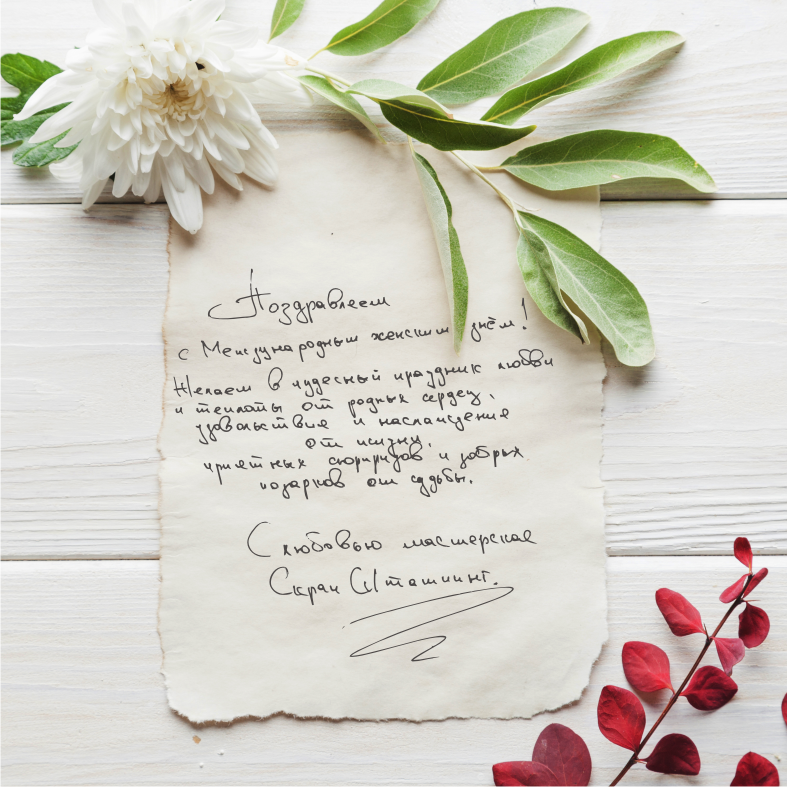 Поздравляем
с Международным женским днём!
Желаем в чудесный праздник любви
и теплоты от родных сердец,
удовольствие и наслаждение
от жизни,
приятных сюрпризов и добрых
подарков от судьбы.
С любовью мастерская
Скрап Штампинг.